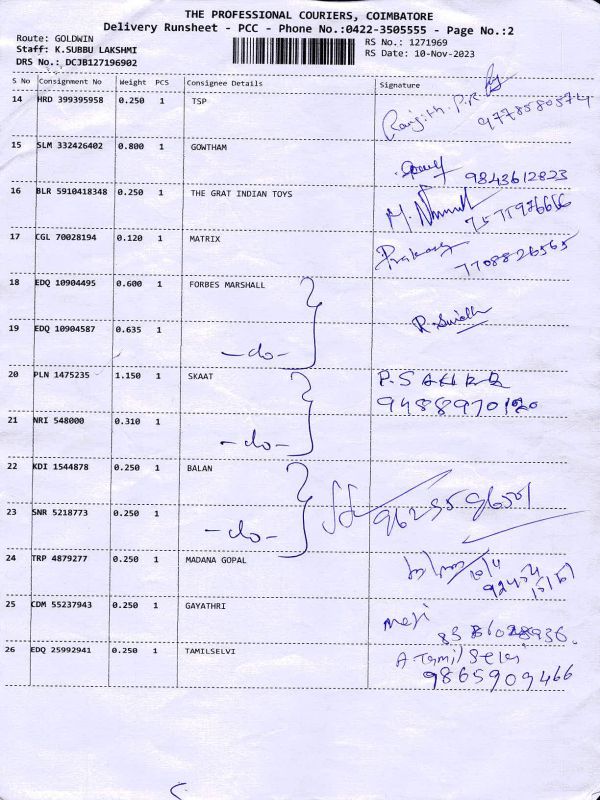 THE PROFESSIONAL COURIERS, COIMBATORE
Delivery Runsheet - PCC - Phone No.:0422-3505555 - Page No.:2
Route: GOLDWIN
Staff: K.SUBBU LAKSHMI
DRS No.: DCJB127196902
RS No.: 1271969
RS Date: 10-Nov-2023
S No Consignment No Weight PCS Consignee Details Signature
14 HRD 399395958 0.250 1 TSP
Ranjith. P.R
9778580574
15 SLM 332426402 0.800 1 GOWTHAM
9843612823
16 BLR 5910418348 0.250 1 THE GRAT INDIAN TOYS
17 CGL 70028194 0.120 1 MATRIX
7708826565
18 EDQ 10904495 0.600 1 FORBES MARSHALL
19 EDQ 10904587 0.635 1 -do-
20 PLN 1475235 1.150 1 SKAAT
9488970120
21 NRI 548000 0.310 1 -do-
22 KDI 1544878 0.250 1 BALAN
23 SNR 5218773 0.250 1 -do-
24 TRP 4879277 0.250 1 MADANA GOPAL
25 CDM 55237943 0.250 1 GAYATHRI
26 EDQ 25992941 0.250 1 TAMILSELVI
A Tamil Selvi
9865909466